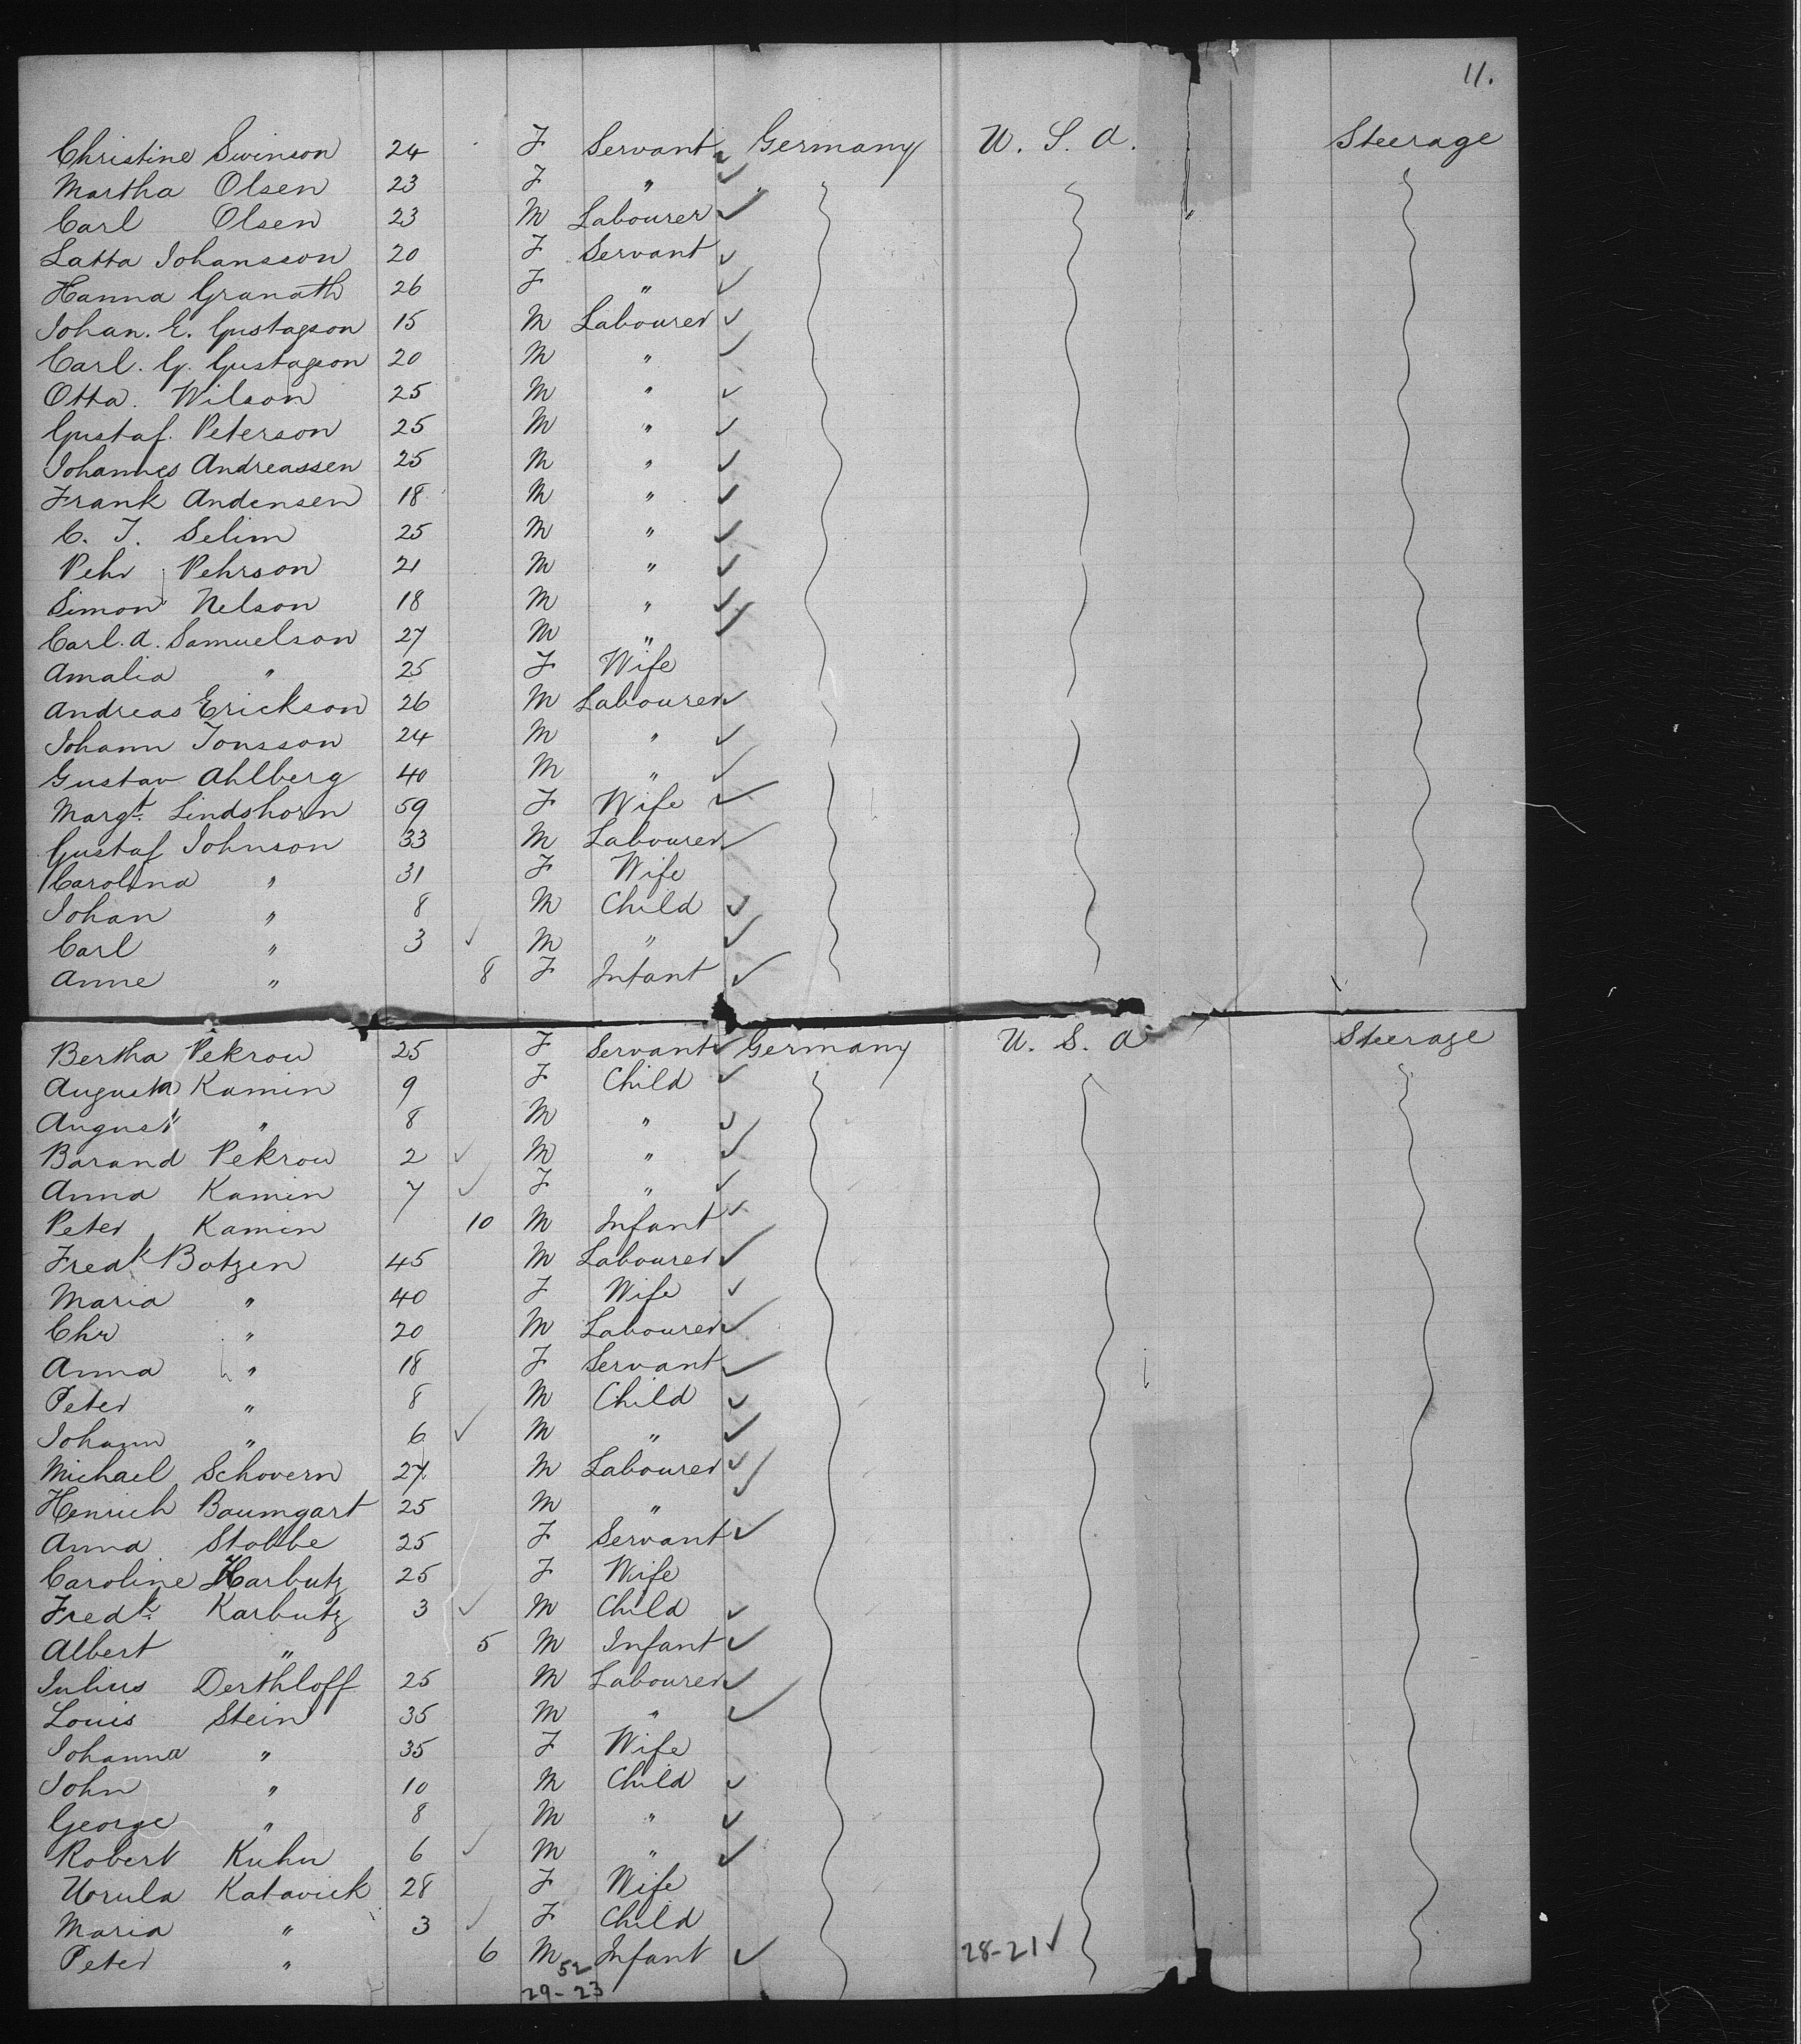 11.
Christine Swinson 24 F Servant Germany U. S. A. Steerage
Martha Olsen 23 F "
Carl Olsen 23 M Labourer
Latta Johansson 20 F Servant
Hanna Granath 26 F "
Johan. E. Gustagson 15 M Labourer
Carl. G. Gustagson 20 M "
Otta. Wilson 25 M "
Gustaf. Peterson 25 M "
Johannes Andreassen 25 M "
Frank Andensen 18 M "
C. J. Selim 25 M "
Pehr Pehrson 21 M "
Simon Nelson 18 M "
Carl. A. Samuelson 27 M "
Amalia " 25 F Wife
Andreas Erickson 26 M Labourer
Johann Jonsson 24 M "
Gustav Ahlberg 40 M "
Margt. Lindshorn 59 F Wife
Gustaf Johnson 33 M Labourer
Carolina " 31 F Wife
Johan " 8 M Child
Carl " 3 M "
Anne " 8 F Infant
Bertha Pekrow 25 F Servant Germany U. S. A Steerage
Augusta Kamin 9 F Child
August " 8 M "
Barand Pekrow 2 M "
Anna Kamin 7 F "
Peter Kamin 10 M Infant
Fredk Botzen 45 M Labourer
Maria " 40 F Wife
Chr " 20 M Labourer
Anna " 18 F Servant
Peter " 8 M Child
Johann " 6 M "
Michael Schovern 27 M Labourer
Henrich Baumgart 25 M "
Anna Stobbe 25 F Servant
Caroline Karbutz 25 F Wife
Fredk. Karbutz 3 M Child
Albert " 5 M Infant
Julius Derthloff 25 M Labourer
Louis Stein 35 M "
Johanna " 35 F Wife
John " 10 M Child
George " 8 M "
Robert Kuhn 6 M "
Ursula Katavick 28 F Wife
Maria " 3 F Child
Peter " 6 M Infant 28-21
52
29-23